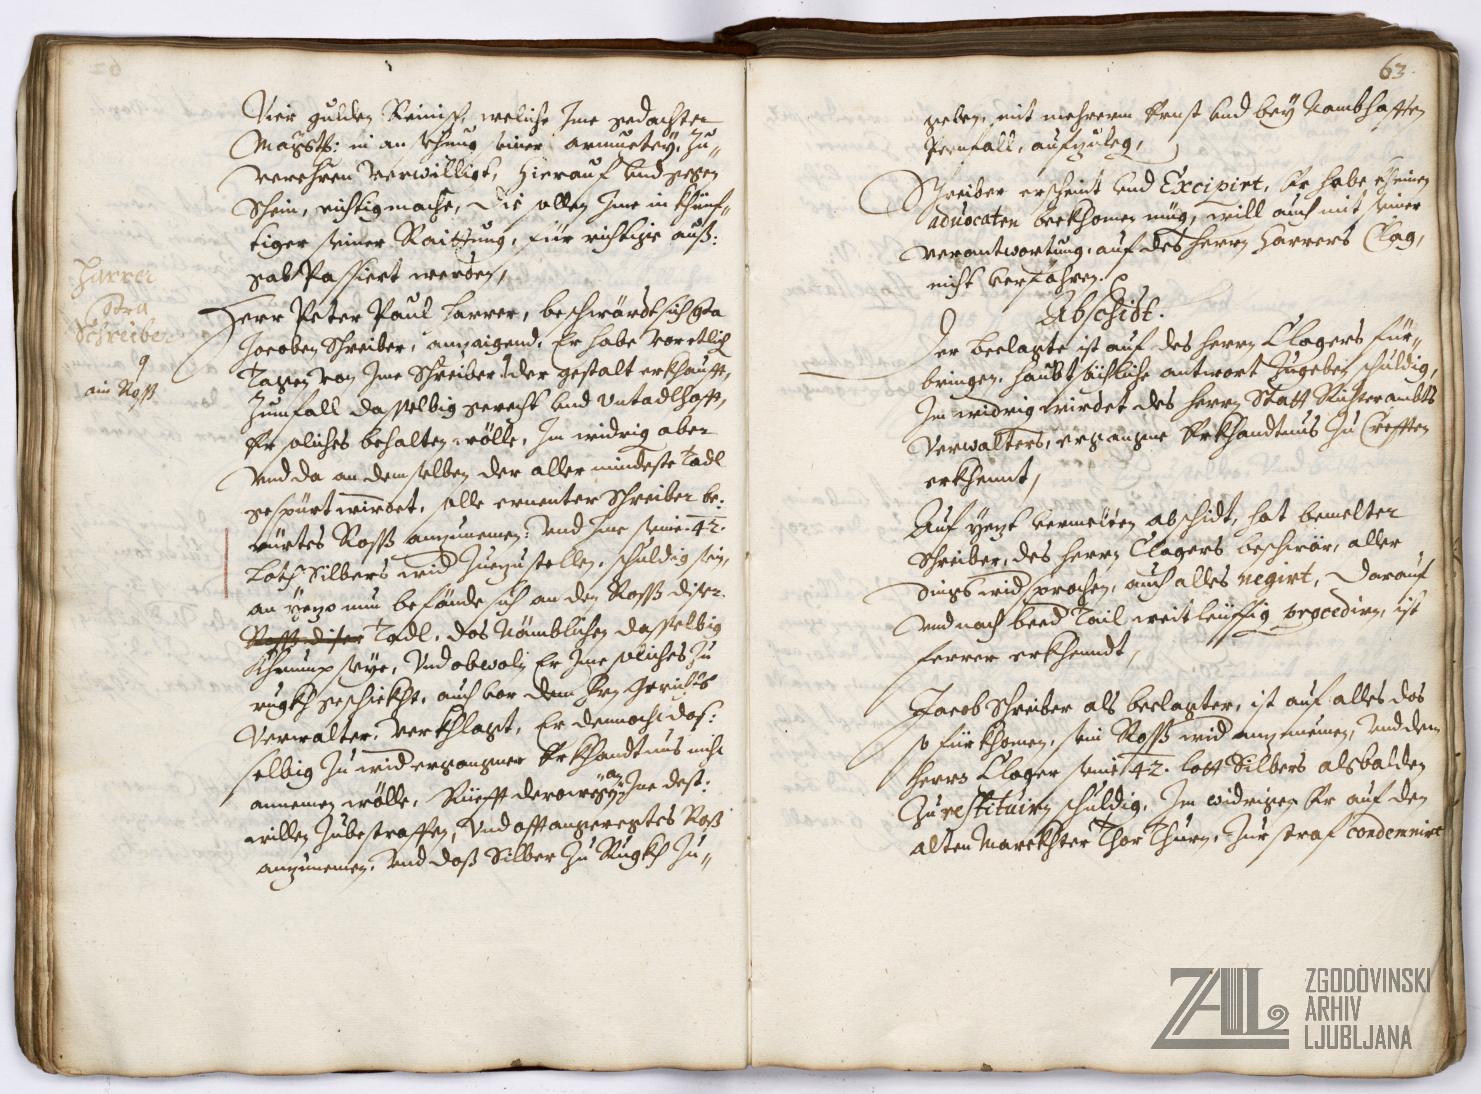 Vier gulden Reinisch, weliche Ime gedachter
Magistr: in ansehung seiner armuetey, zu„
verehren verwilligt, hierauf und gegen
Schein, richtig mache, die sollen Ime in khünf„
tiger seiner Raittung, für richtige auß:
gab Passiert werden,
Harrer
Contra
Schreiber
ain Roß
Herr Peter Paul Harrer, beschwärdt sich
Jacoben Schreiber, anzaigend, Er habe
Tagen von Ime Schreiber der gestalt erkhaufft,
Zumfall dasselbig gerecht und untadlhafft,
Er soliches behalten wölle, Im widrig aber
Und da an demselben der aller mindeste Tadl
gespürt wirdet, solle ernenter Schreiber be:
rürtes Roß anzunemen, und Ime seine 42.
Loth Silbers wid Zuezustellen, schuldig sein,
an yezo nun befände sich an den Roß diser
Roß diser Tadl, das Nämblichen dasselbig
Khrump seye, Und obwoln Er Ime soliches zu
rugkh geschickht, auch vor dem Hrn Gerichts
Verwalter, verkhlagt, Er dennoch das:
selbig Zu wid ergangner Erkhandtnus nicht
annemen wölle, Rüefft derowegen an Ine dest:
willen Zubestraffen, Und offtangeregtes Roß
anzunemen, Und daß Silber Zu Rugkh Zu„
63.
geben, mit mehrerm Ernst und bey Nambhafften
Peenfall, aufzuleg,
Schreiber erscheint und Excipirt, Er habe kheinen
aduocaten bekhomen müg, will auch mit seiner
verantwortung, auf des Herrn Harrers Clag,
nicht verfahren.
Abschidt.
Der beclagte ist auf des Herrn Clagers für„
bringen, haubtsächliche antwort Zugeben schuldig,
Im widrig wirdet des Herrn Statt Richterambts
Verwalters, ergangne Erkhandtnus Zu Crefften
erkhennt,
Auf yezt vermelten abschidt, hat bemelter
Schreiber, des Herrn Clagers beschwär, aller
dings widsprochen, auch alles negirt, Darauf
Und nach beed Tail weitleüffig procedirn, ist
ferrer erkhenndt,
Jacob Schreiber als beclagter, ist auf alles das
so fürkhomen, sein Roß wid anzunemen, Und dem
Herrn Clager seine 42. loth Silbers alsbalden
Zu restituirn schuldig, Im widrigen Er auf den
alten Marckhter Thor Thurn, Zur straf condemnirt
ZAL
ZGODOVINSKI
ARHIV
LJUBLJANA